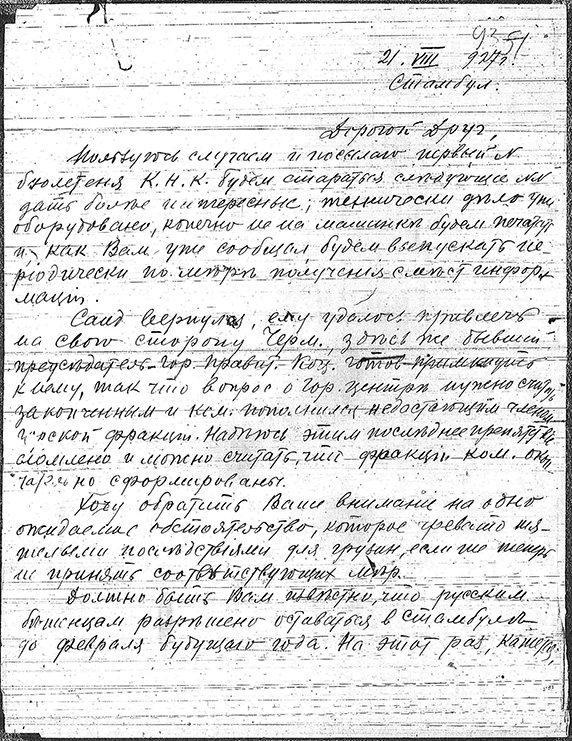 21. VIII 927 г.
Стамбул.
Дорогой Друг,
Пользуюсь случаем и посылаю первый №
бюлетеня К.Н.К. будем стараться следующие №№
дать более интересные; технически дело уже
оборудовано, конечно не на машинке будем печатать
и, как Вам уже сообщал будем выпускать пе
ріодически по мѣрѣ полученія с мѣст инфор-
маціи.
Саид вернулся, ему удалось привлечь
на свою сторону Черм., здѣсь же бывший
предсѣдатель Гор. Правит. Коц. готов примкнуть
к нему, так что вопрос о Гор. центрѣ нужно считать
законченным и ком. пополнился недостающим членом
Горской фракціи. Надѣюсь этим послѣднее препятствие
сломлено и можно считать, что фракціи ком. окон
чательно сформированы.
Хочу обратить Ваше внимание на одно
ожидаемое обстоятельство, которое чревато тя-
желыми послѣдствіями для грузин, если не теперь
не принять соотвѣтствующих мѣр.
Должно быть Вам извѣстно, что русским
бѣженцам разрѣшено оставаться в Стамбулѣ
до февраля будущаго года. На этот раз, кажется,